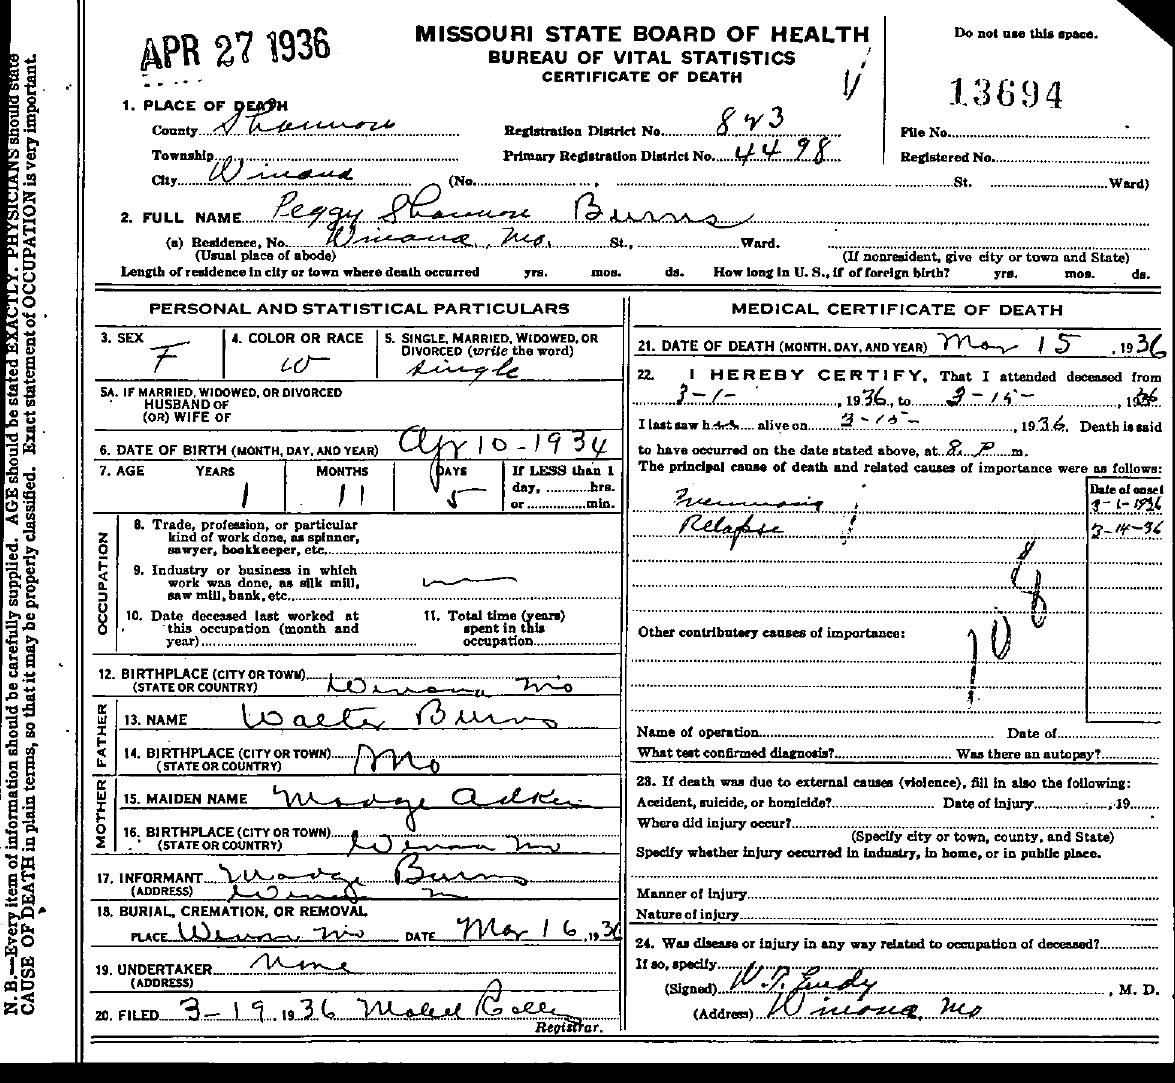 APR 27 1936
MISSOURI STATE BOARD OF HEALTH
BUREAU OF VITAL STATISTICS
CERTIFICATE OF DEATH
Do not use this space.
13694
1. PLACE OF DEATH
County Shannon Registration District No. 823 File No.
Township Primary Registration District No. 4498 Registered No.
City Winona (No. , St. Ward)
2. FULL NAME Peggy Shannon Burns
(a) Residence, No. Winona, Mo. St., Ward.
(Usual place of abode) (If nonresident, give city or town and State)
Length of residence in city or town where death occurred yrs. mos. ds. How long in U. S., if of foreign birth? yrs. mos. ds.
PERSONAL AND STATISTICAL PARTICULARS
3. SEX F
4. COLOR OR RACE W
5. SINGLE, MARRIED, WIDOWED, OR
DIVORCED (write the word)
single
5A. IF MARRIED, WIDOWED, OR DIVORCED
HUSBAND OF
(OR) WIFE OF
6. DATE OF BIRTH (MONTH, DAY, AND YEAR) Apr 10-1934
7. AGE YEARS MONTHS DAYS If LESS than 1
day, hrs.
or min.
1 11 5
OCCUPATION
8. Trade, profession, or particular
kind of work done, as spinner,
sawyer, bookkeeper, etc.
9. Industry or business in which
work was done, as silk mill,
saw mill, bank, etc.
10. Date deceased last worked at
this occupation (month and
year)
11. Total time (years)
spent in this
occupation
12. BIRTHPLACE (CITY OR TOWN) Winona Mo
(STATE OR COUNTRY)
FATHER
13. NAME Walter Burns
14. BIRTHPLACE (CITY OR TOWN) Mo
(STATE OR COUNTRY)
MOTHER
15. MAIDEN NAME Madge
16. BIRTHPLACE (CITY OR TOWN) Winona Mo
(STATE OR COUNTRY)
17. INFORMANT Madge Burns
(ADDRESS) Winona M
18. BURIAL, CREMATION, OR REMOVAL
PLACE Winona Mo DATE Mar 16, 1936
19. UNDERTAKER None
(ADDRESS)
20. FILED 3-19 1936 Mabel
Registrar.
MEDICAL CERTIFICATE OF DEATH
21. DATE OF DEATH (MONTH, DAY, AND YEAR) Mar 15, 1936
22. I HEREBY CERTIFY, That I attended deceased from
3-1-, 1936, to 3-15-, 1936
I last saw h alive on 3-15-, 1936. Death is said
to have occurred on the date stated above, at 8 P m.
The principal cause of death and related causes of importance were as follows:
Date of onset
3-1-1936
Relapse 3-14-36
108
Other contributory causes of importance:
Name of operation Date of
What test confirmed diagnosis? Was there an autopsy?
23. If death was due to external causes (violence), fill in also the following:
Accident, suicide, or homicide? Date of injury , 19
Where did injury occur?
(Specify city or town, county, and State)
Specify whether injury occurred in industry, in home, or in public place.
Manner of injury
Nature of injury
24. Was disease or injury in any way related to occupation of deceased?
If so, specify
(Signed) W. T. Eudy, M. D.
(Address) Winona, Mo
N. B.—Every item of information should be carefully supplied. AGE should be stated EXACTLY. PHYSICIANS should state
CAUSE OF DEATH in plain terms, so that it may be properly classified. Exact statement of OCCUPATION is very important.